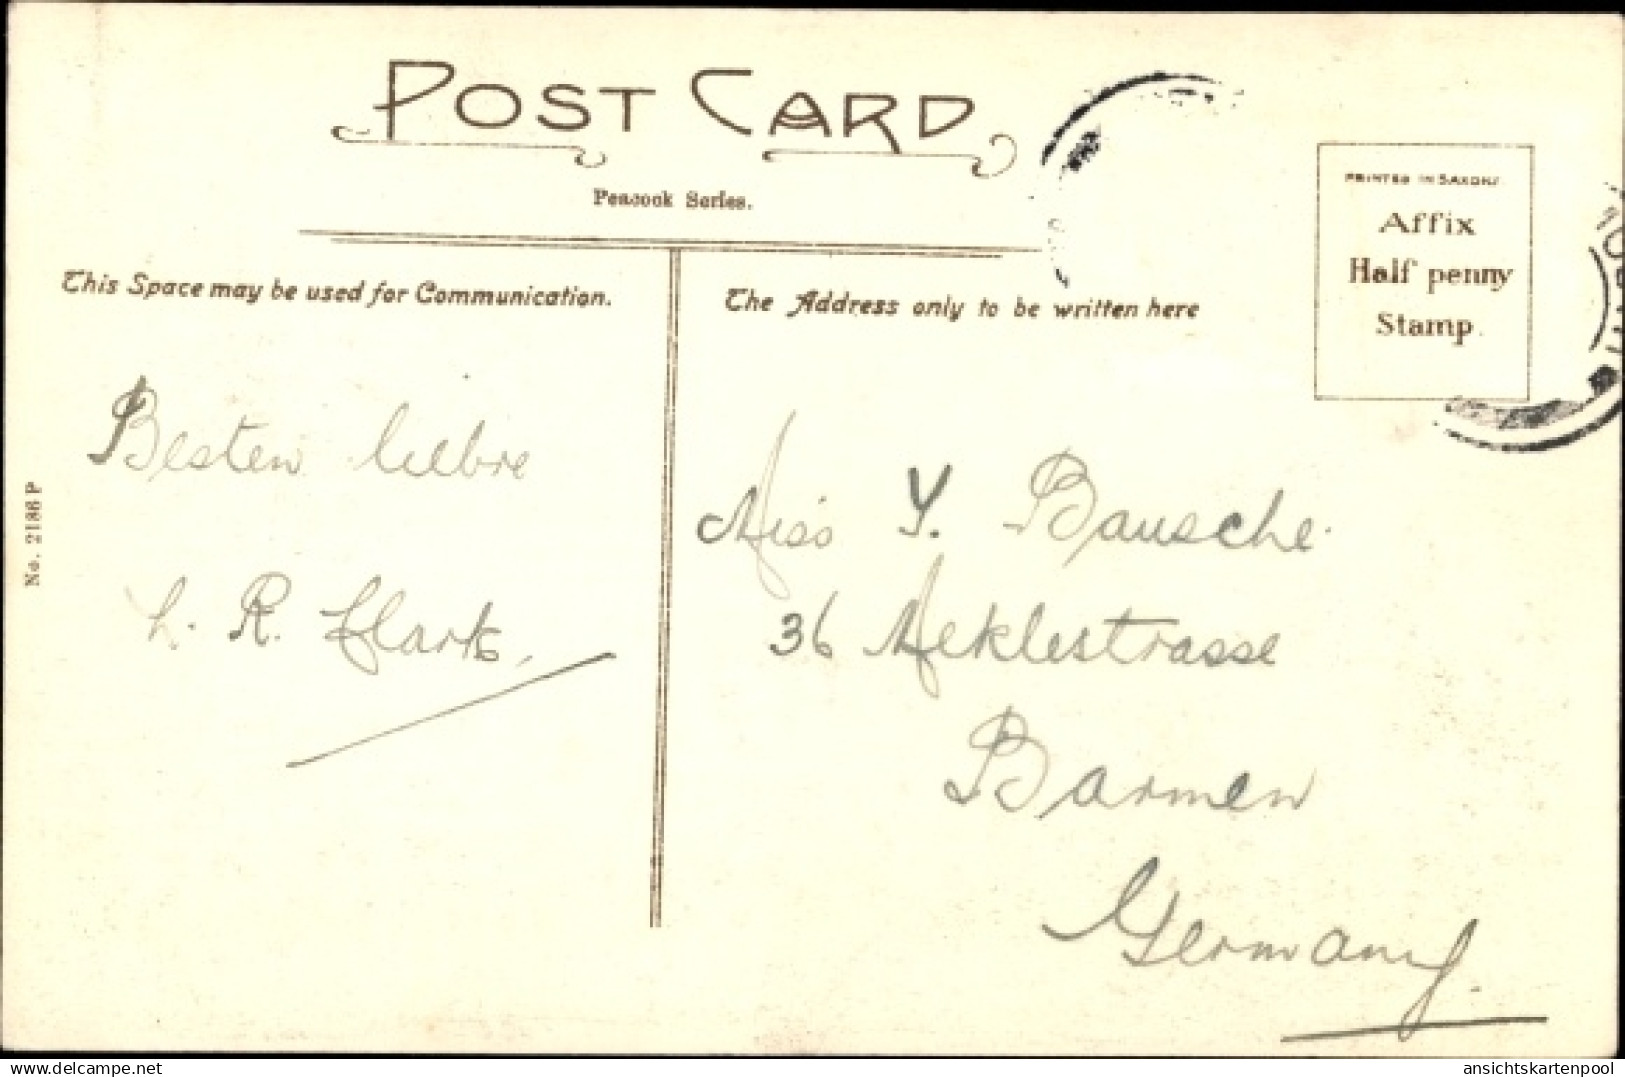 POST CARD
Peacock Series.
This Space may be used for Communication.
The Address only to be written here
PRINTED IN SAXONY
Affix
Half penny
Stamp.
Besten liebre
L. R. Clark.
Miss Y. Bausche.
36 Meklestrasse
Barmen
Germany.
No. 2186 P
www.delcampe.net
ansichtskartenpool